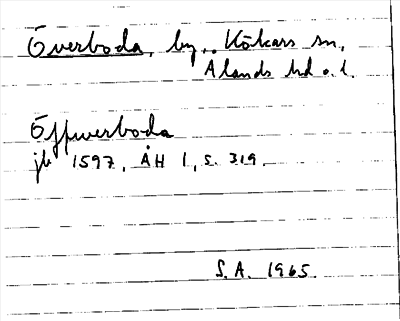 Överboda, by, Kökars sn,
Ålands hd o. l.
Öffwerboda
jb 1597, ÅH 1, s. 319.
S.A. 1965.